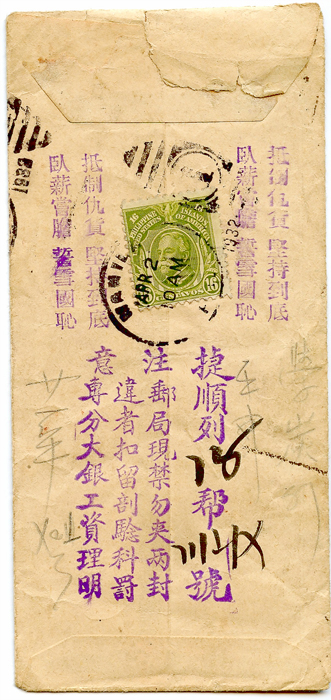 抵制仇貨 堅持到底
臥薪嘗膽 誓雪國恥
抵制仇貨 堅持到底
臥薪嘗膽 誓雪國恥
PHILIPPINE ISLANDS
OF AMERICA
16 CENTAVOS
APR 2
AM
1932
捷順列 18 帮 號
注郵局現禁勿夾兩封
違者扣留剖騐科罰
意專分大銀工資理明